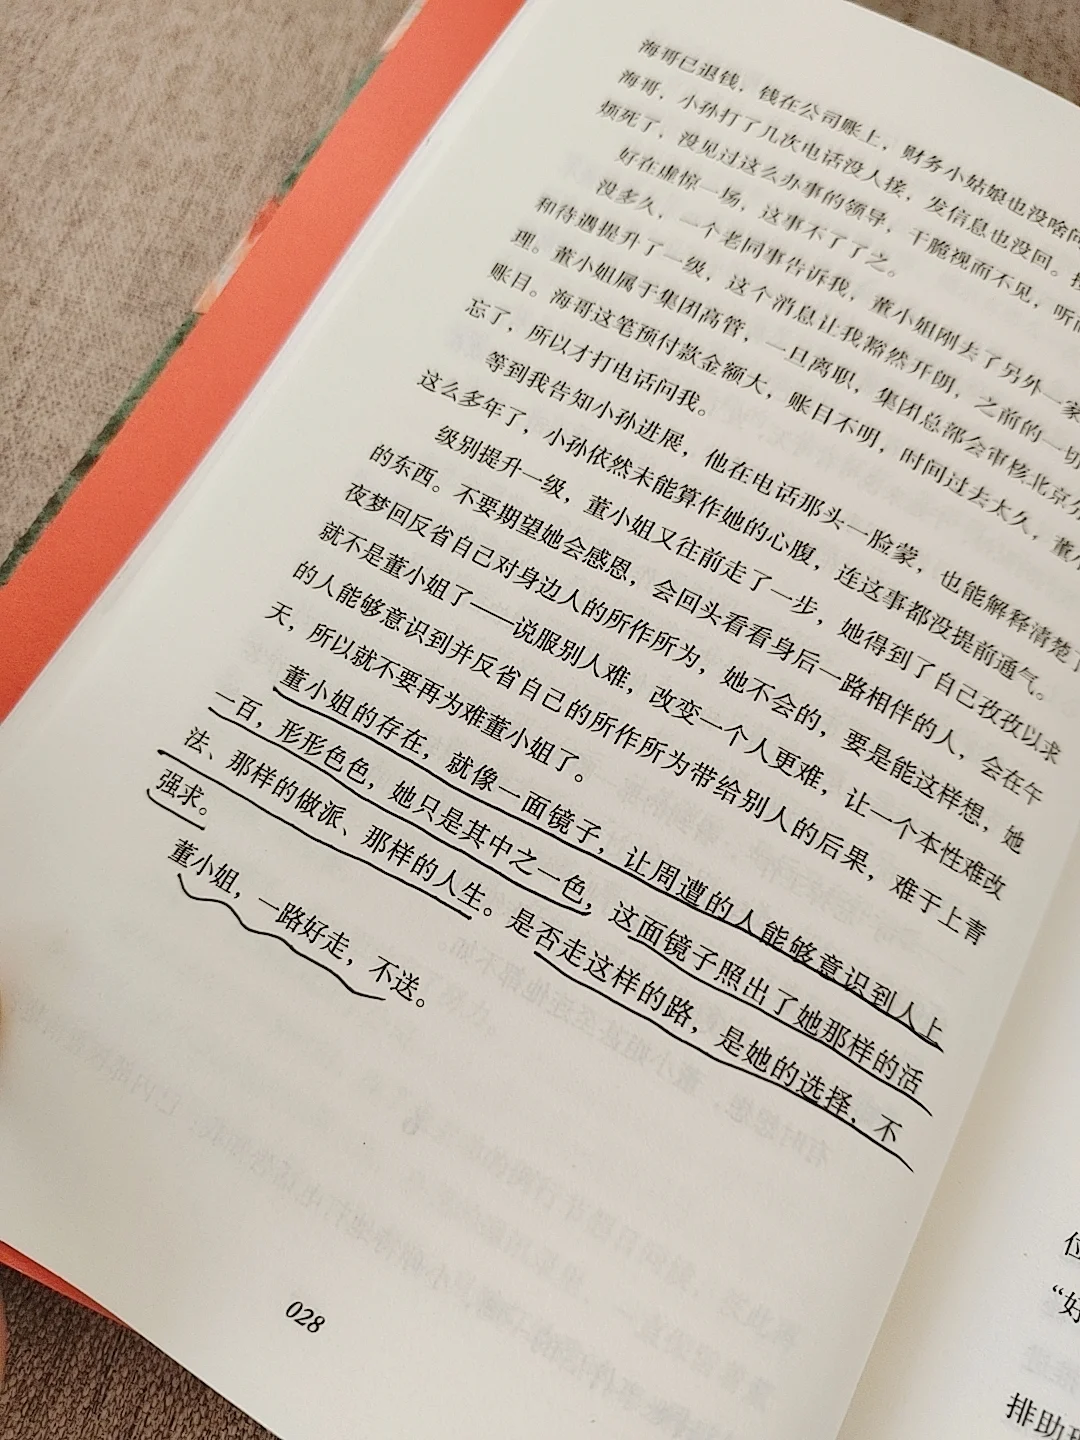 海哥已退钱，钱在公司账上，财务小姑娘也没啥问
海哥，小孙打了几次电话没人接，发信息也没回。
烦死了，没见过这么办事的领导，干脆视而不见，听
好在虚惊一场，这事不了了之。
没多久，一个老同事告诉我，董小姐刚去了另外一家
和待遇提升了一级，这个消息让我豁然开朗，之前的一切
理。董小姐属于集团高管，一旦离职，集团总部会审核北京分
账目。海哥这笔预付款金额大，账目不明，时间过去太久，董
忘了，所以才打电话问我。
等到我告知小孙进展，他在电话那头一脸蒙，也能解释清楚了
这么多年了，小孙依然未能算作她的心腹，连这事都没提前通气。
级别提升一级，董小姐又往前走了一步，她得到了自己孜孜以求
的东西。不要期望她会感恩，会回头看看身后一路相伴的人，会在午
夜梦回反省自己对身边人的所作所为，她不会的，要是能这样想，她
就不是董小姐了——说服别人难，改变一个人更难，让一个本性难改
的人能够意识到并反省自己的所作所为带给别人的后果，难于上青
天，所以就不要再为难董小姐了。
董小姐的存在，就像一面镜子，让周遭的人能够意识到人上
一百，形形色色，她只是其中之一色，这面镜子照出了她那样的活
法、那样的做派、那样的人生。是否走这样的路，是她的选择，不
强求。
董小姐，一路好走，不送。
028
“好
排助理